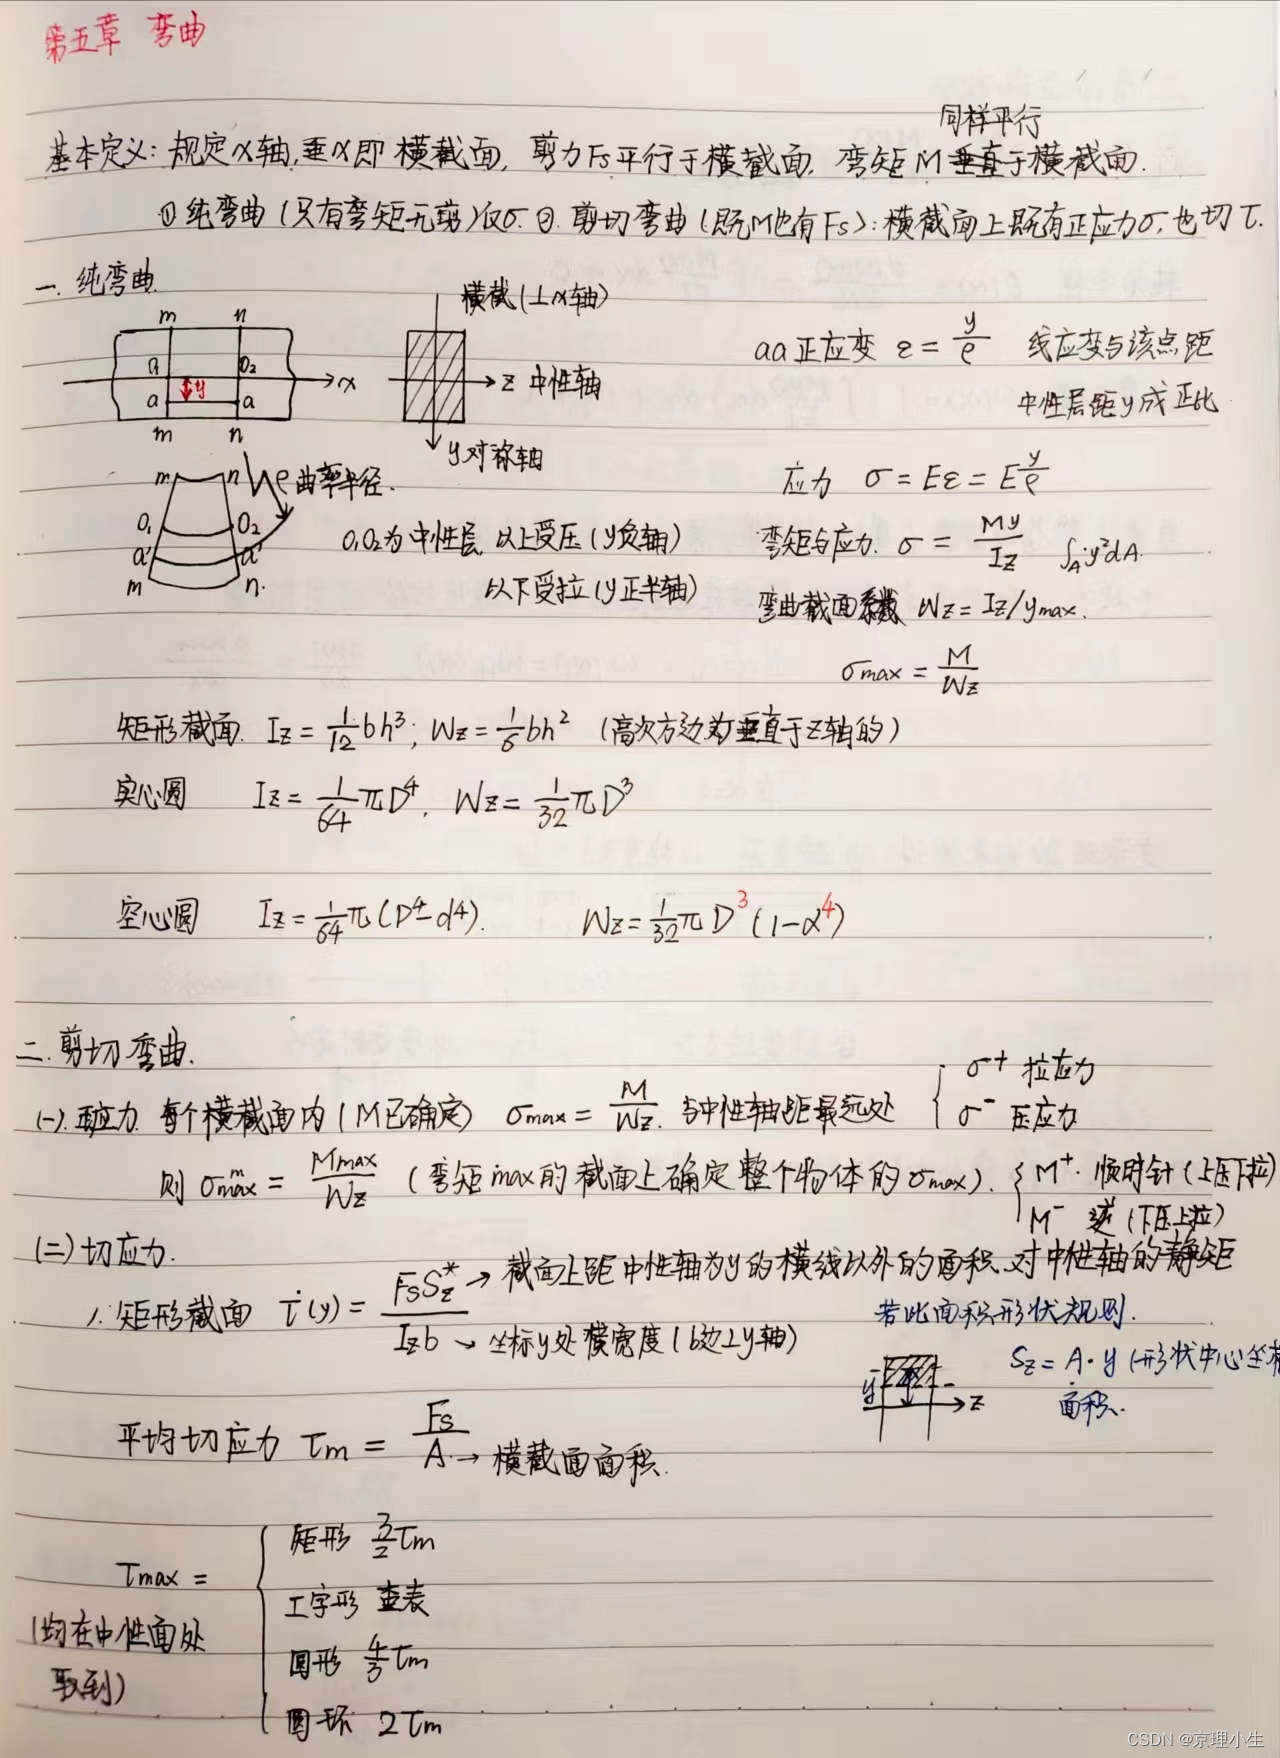 第五章 弯曲
同样平行
基本定义：规定x轴,垂x即横截面，剪力Fs平行于横截面，弯矩M垂直于横截面.
①纯弯曲(只有弯矩无剪)仅σ. ②.剪切弯曲(既M也有Fs)：横截面上既有正应力σ,也切τ.
一. 纯弯曲.
m n
横截(⊥x轴)
aa正应变 ε = y/ρ 线应变与该点距
中性层距y成正比
O₁ O₂ x
y
a a
m n
z 中性轴
y对称轴
m n ρ曲率半径.
O₁ O₂
a' a'
m n.
应力 σ = Eε = E y/ρ
O₁O₂为中性层,以上受压(y负轴)
以下受拉(y正半轴)
弯矩与应力. σ = My/Iz ∫_A y²dA.
弯曲截面系数 Wz = Iz/ymax.
σmax = M/Wz
矩形截面. Iz = 1/12 bh³; Wz = 1/6 bh² (高次方边为垂直于z轴的)
实心圆 Iz = 1/64 πD⁴, Wz = 1/32 πD³
空心圆 Iz = 1/64 π(D⁴-d⁴). Wz = 1/32 πD³(1-α⁴)
二.剪切弯曲.
(一).正应力 每个横截面内(M已确定) σmax = M/Wz. 与中性轴距最远处 { σ⁺ 拉应力
σ⁻ 压应力
则 σmax^m = Mmax/Wz (弯矩max的截面上确定整个物体的σmax). { M⁺ 顺时针(上压下拉)
M⁻ 逆(下压上拉)
(二)切应力.
1.矩形截面 τ(y) = FsSz*/Izb → 截面上距中性轴为y的横线以外的面积对中性轴的静矩
→ 坐标y处横宽度(b边⊥y轴)
若此面积形状规则.
Sz = A·y (形状中心坐标
面积.
y z
平均切应力 τm = Fs/A → 横截面面积.
τmax =
(均在中性面处
取到)
矩形 3/2 τm
工字形 查表
圆形 4/3 τm
圆环 2τm
CSDN @京理小生